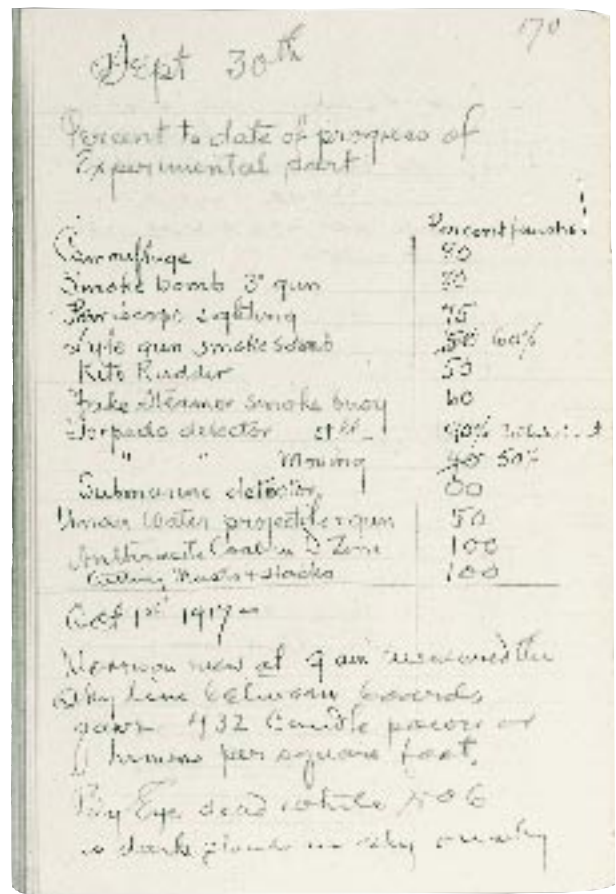 170
Sept 30th
Percent to date of progress of
Experimental part
Percent finished
Camouflage 90
Smoke bomb 3" gun 70
Periscope sighting 75
Lyle gun smoke bomb 50 60%
Kite Rudder 50
Fake Steamer smoke buoy 60
Torpedo detector still 90%
" " Moving 40 50%
Submarine detector 00
Under Water projectile & gun 50
Anthracite Coal in D Zone 100
Cutting Masts & Stacks 100
Oct 1st 1917
at 9 am measured the
Sky line between boards
gave 432 Candle power or
lumens per square foot.
By Eye dead white
dark in sky